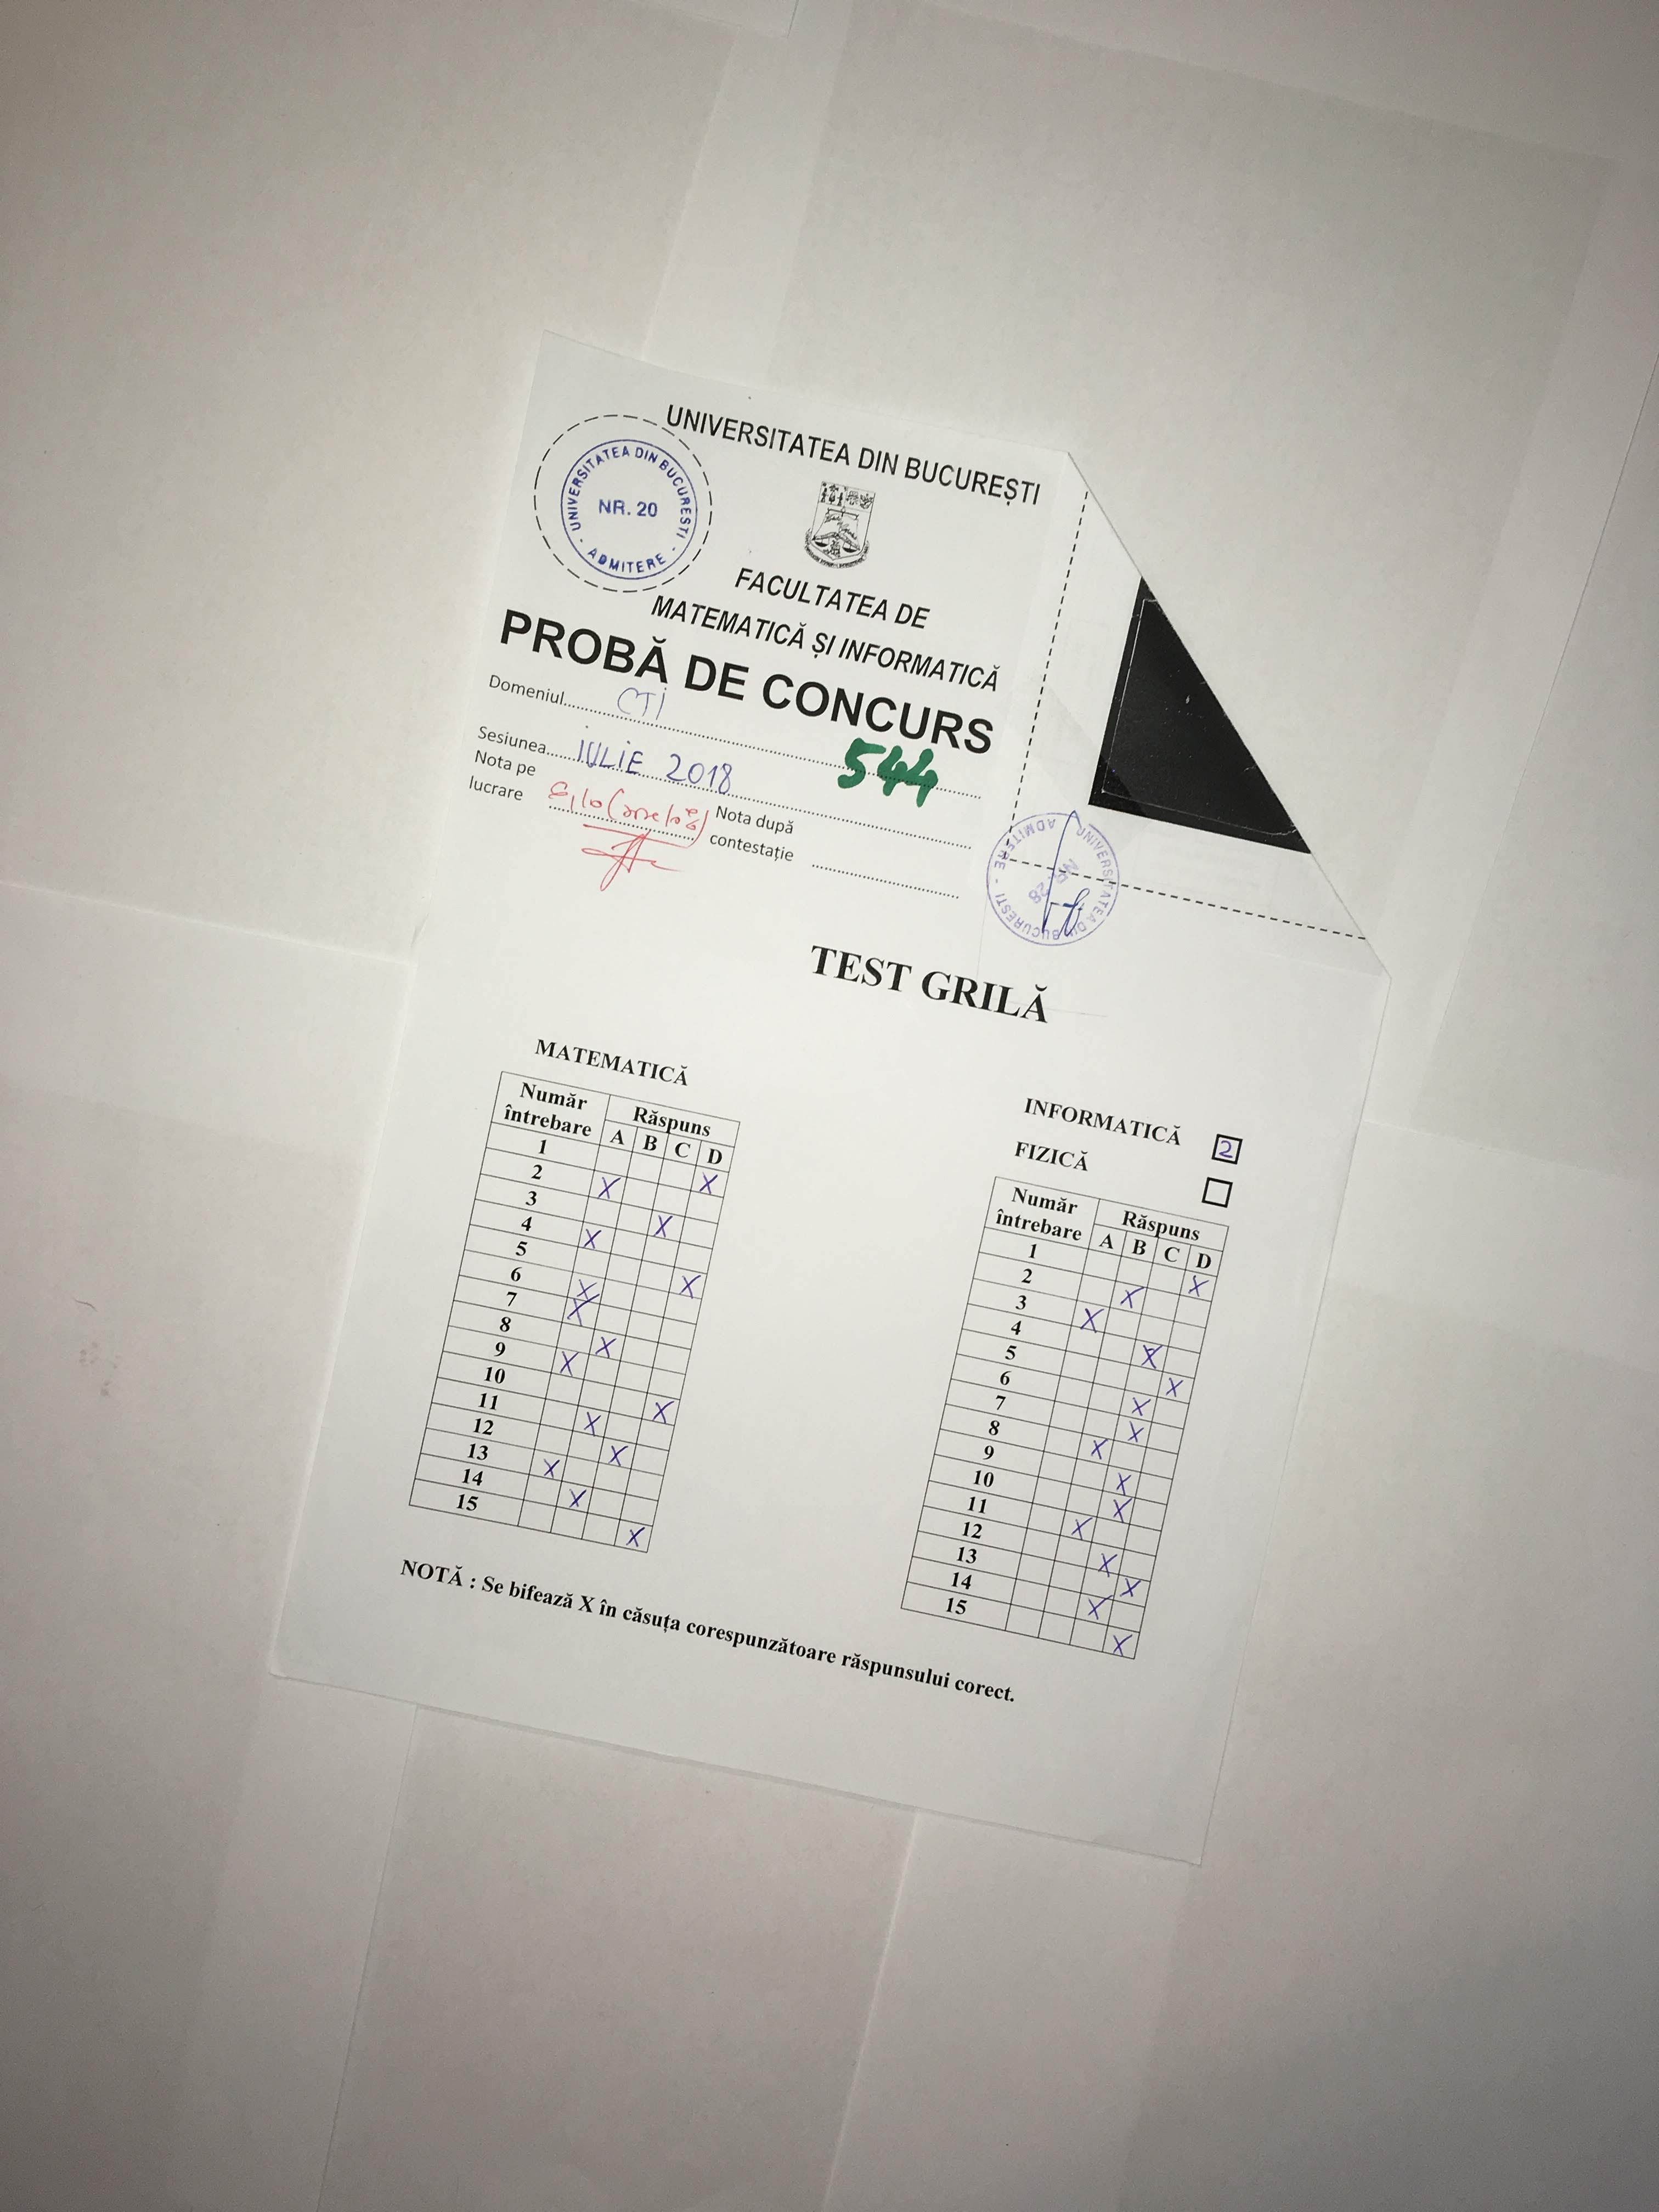 UNIVERSITATEA DIN BUCUREȘTI
UNIVERSITATEA DIN BUCURESTI - ADMITERE -
NR. 20
FACULTATEA DE
MATEMATICĂ ȘI INFORMATICĂ
PROBĂ DE CONCURS
Domeniul CTI
544
Sesiunea IULIE 2018
Nota pe
lucrare
Nota după
contestație
UNIVERSITATEA DIN BUCURESTI - ADMITERE -
NR. 28
TEST GRILĂ
MATEMATICĂ
Număr
întrebare
Răspuns
A B C D
1 X
2 X
3 X
4 X
5 X
6 X
7 X
8 X
9 X
10 X
11 X
12 X
13 X
14 X
15 X
INFORMATICĂ 2
FIZICĂ
Număr
întrebare
Răspuns
A B C D
1 X
2 X
3 X
4 X
5 X
6 X
7 X
8 X
9 X
10 X
11 X
12 X
13 X
14 X
15 X
NOTĂ : Se bifează X în căsuța corespunzătoare răspunsului corect.